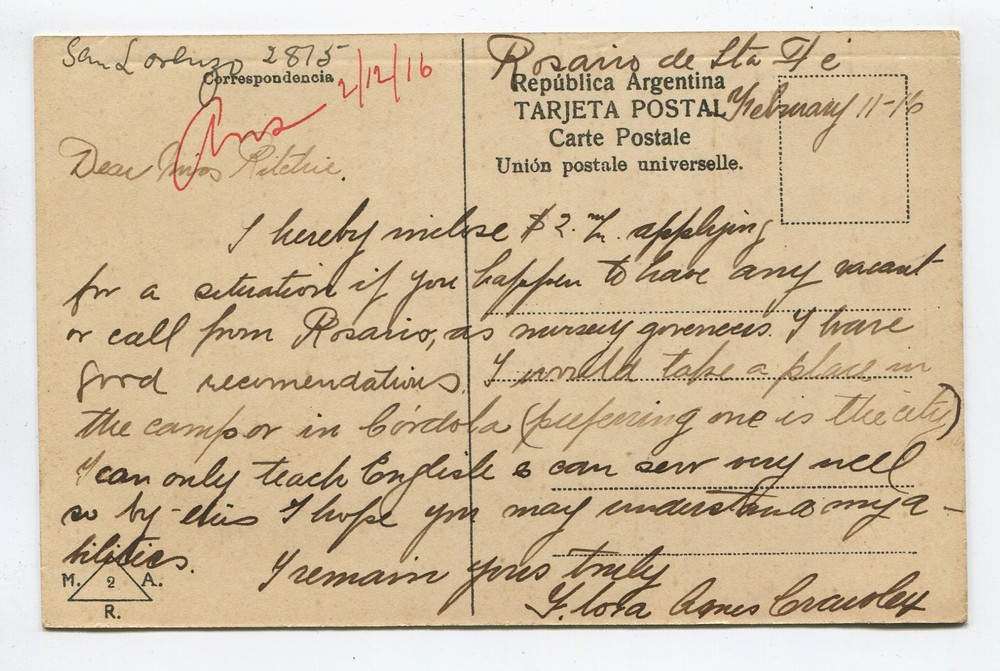 San Lorenzo 2815
Correspondencia
Ans 2/12/16
Rosario de Sta Fé
República Argentina
TARJETA POSTAL
February 11-16
Carte Postale
Unión postale universelle.
Dear Miss Ritchie.
I hereby inclose $2. m/n. applying
for a situation if you happen to have any vacant
or call from Rosario, as nursery governess. I have
good recomendations, I would take a place in
the camp or in Córdola (preferring one is the city)
I can only teach English & can sew very well
so by this I hope you may understand my a-
bilities.
I remain yours truly
Flora Agnes Crawley
M. 2 A.
R.